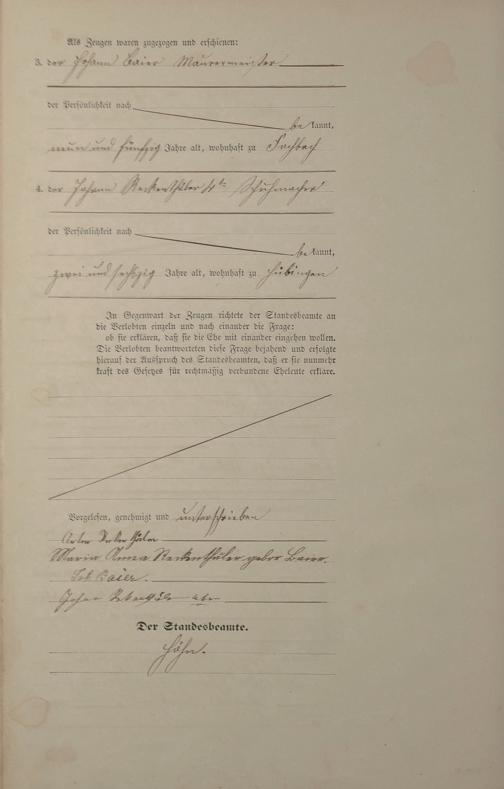 Als Zeugen waren zugezogen und erschienen:
3. der Johann Baier Maurermeister
der Persönlichkeit nach
be kannt,
neun und fünfzig Jahre alt, wohnhaft zu Fachbach
4. der Johann Reckenthäler 4te Schuhmacher
der Persönlichkeit nach
be kannt,
zwei und sechzig Jahre alt, wohnhaft zu Hübingen
In Gegenwart der Zeugen richtete der Standesbeamte an
die Verlobten einzeln und nach einander die Frage:
ob sie erklären, daß sie die Ehe mit einander eingehen wollen.
Die Verlobten beantworteten diese Frage bejahend und erfolgte
hierauf der Ausspruch des Standesbeamten, daß er sie nunmehr
kraft des Gesetzes für rechtmäßig verbundene Eheleute erkläre.
Vorgelesen, genehmigt und unterschrieben
Anton Reckenthäler
Maria Anna Reckenthäler gebor Baier.
Joh Baier.
Johan Rekenthäler
Der Standesbeamte.
Höhn.